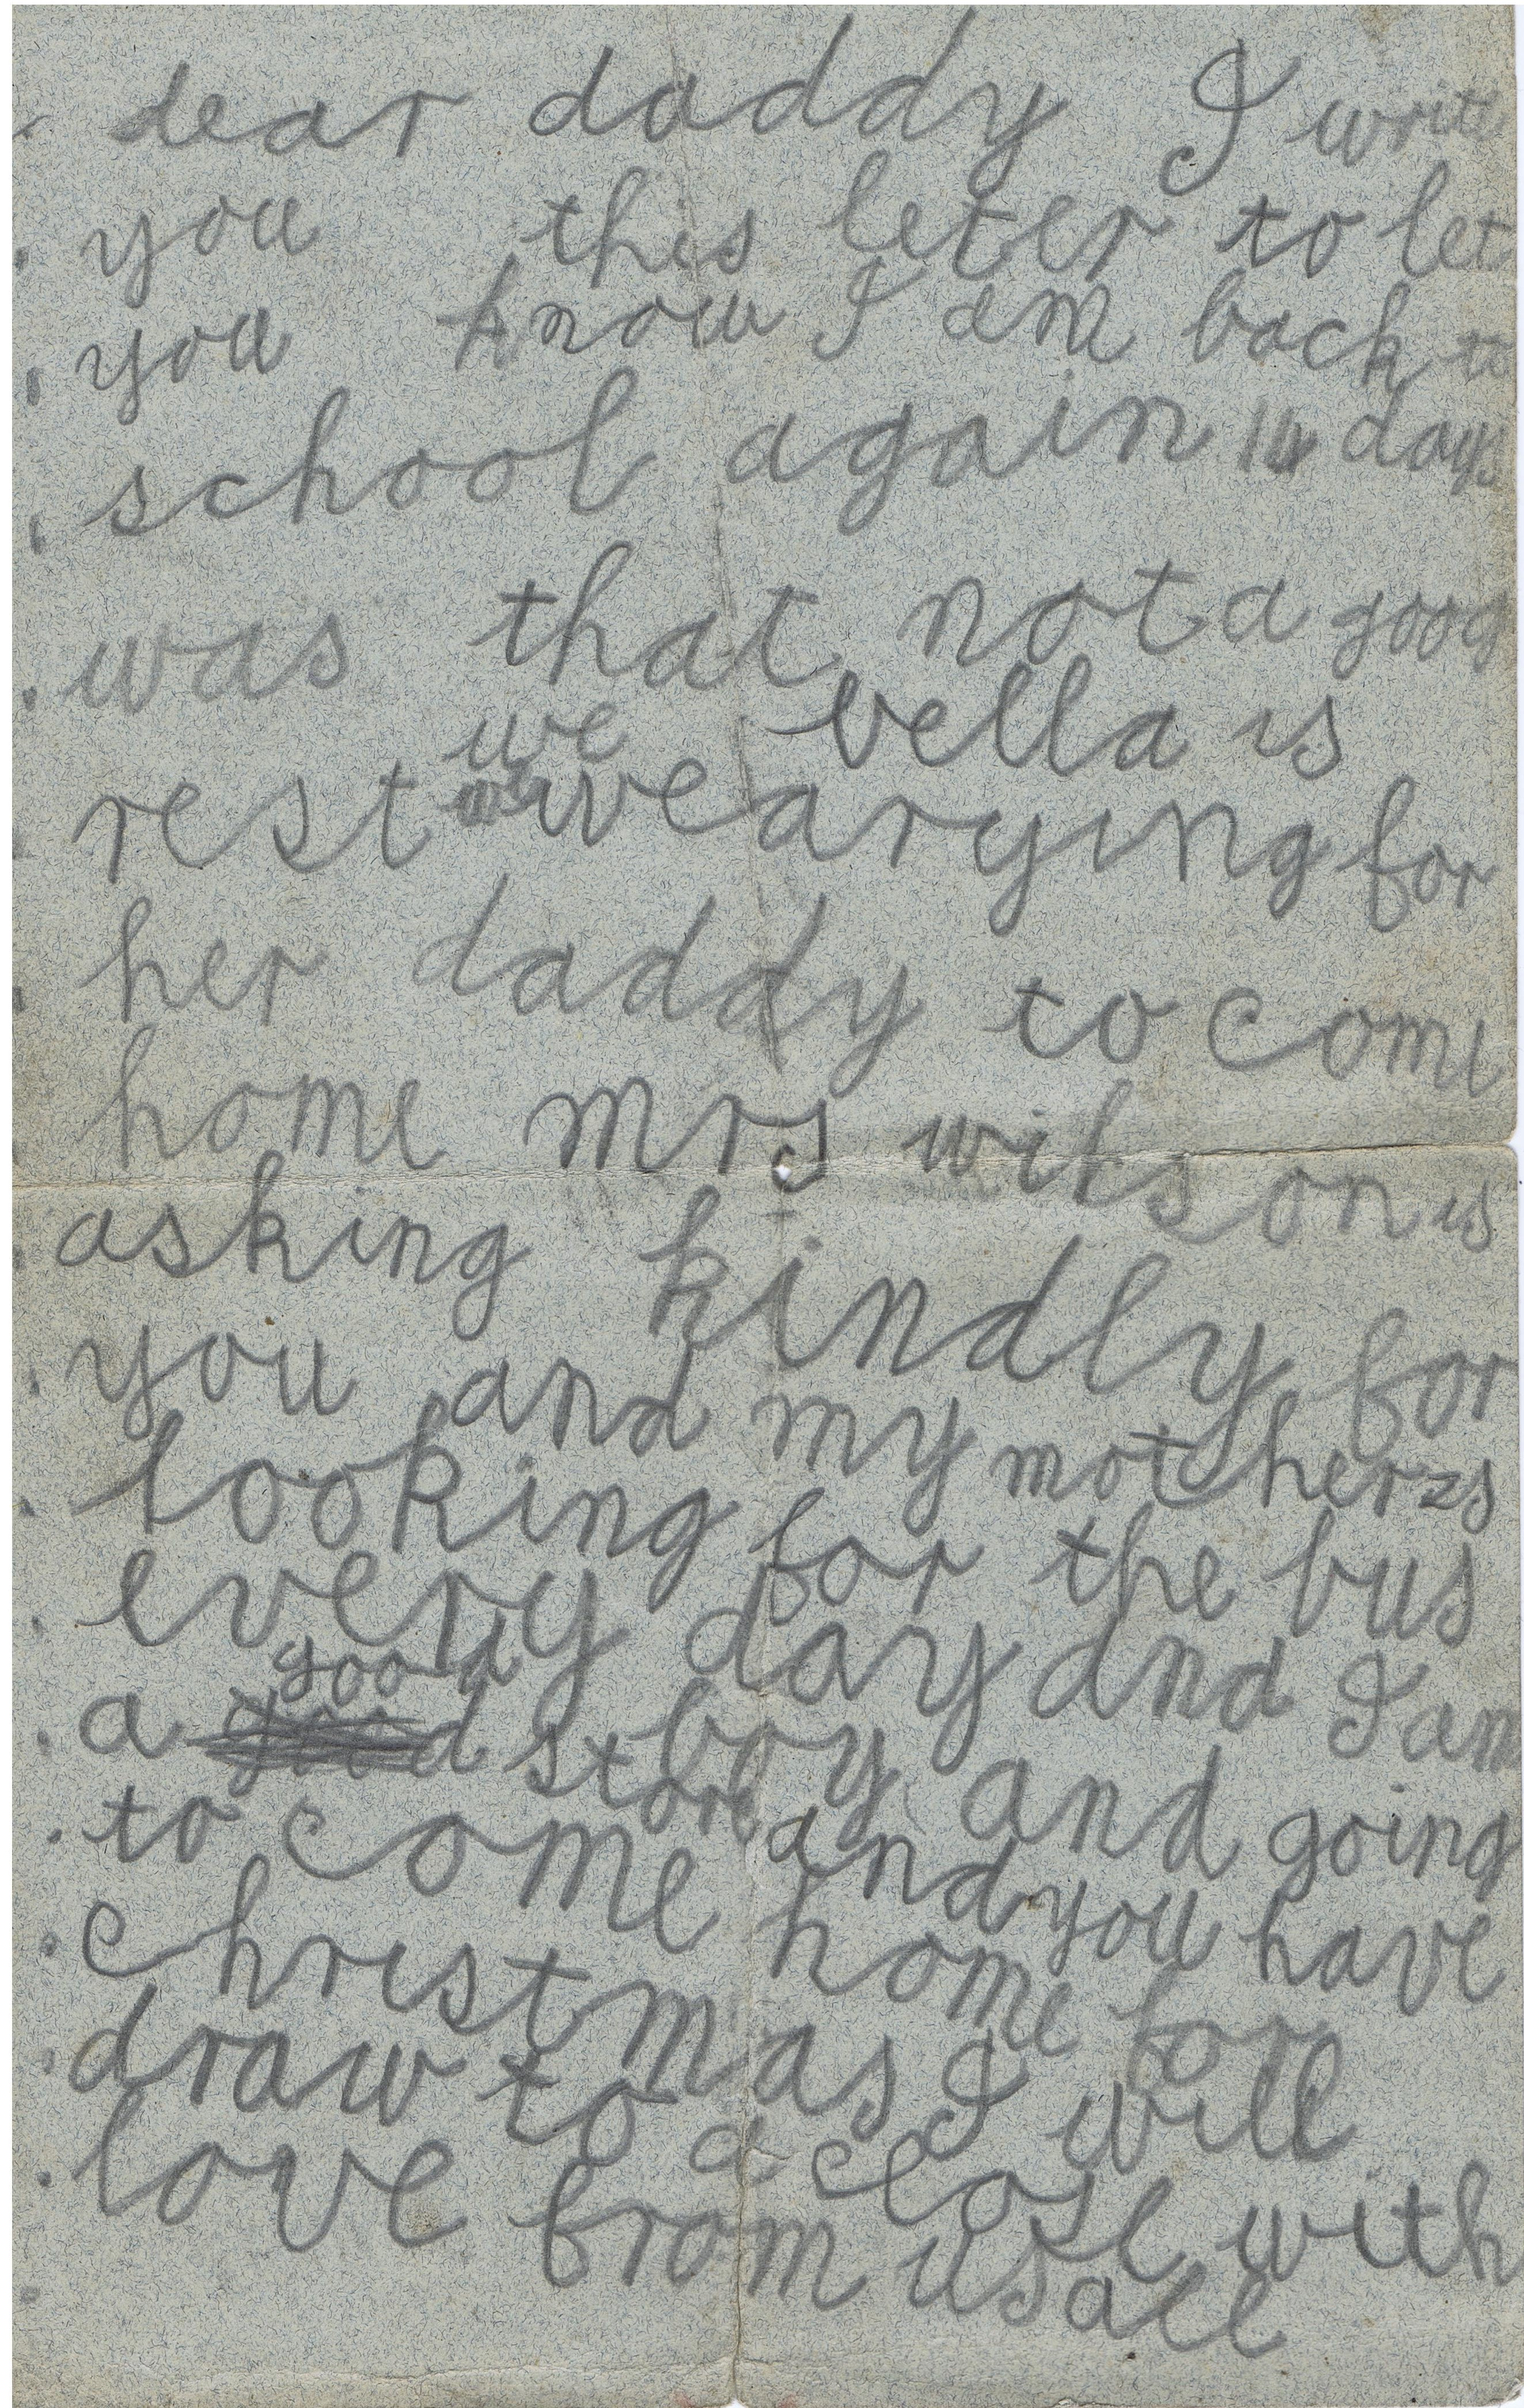 dear daddy I write
you this leter to let
you know I am back to
school again 14 days
was that not a good
rest we bella is
wearying for
her daddy to come
home mrs wilson is
asking kindly for
you and my mother is
looking for the bus
every day and I am
a good boy and going
store and you have
to come home for
christmas I will
draw to a close with
love from us all